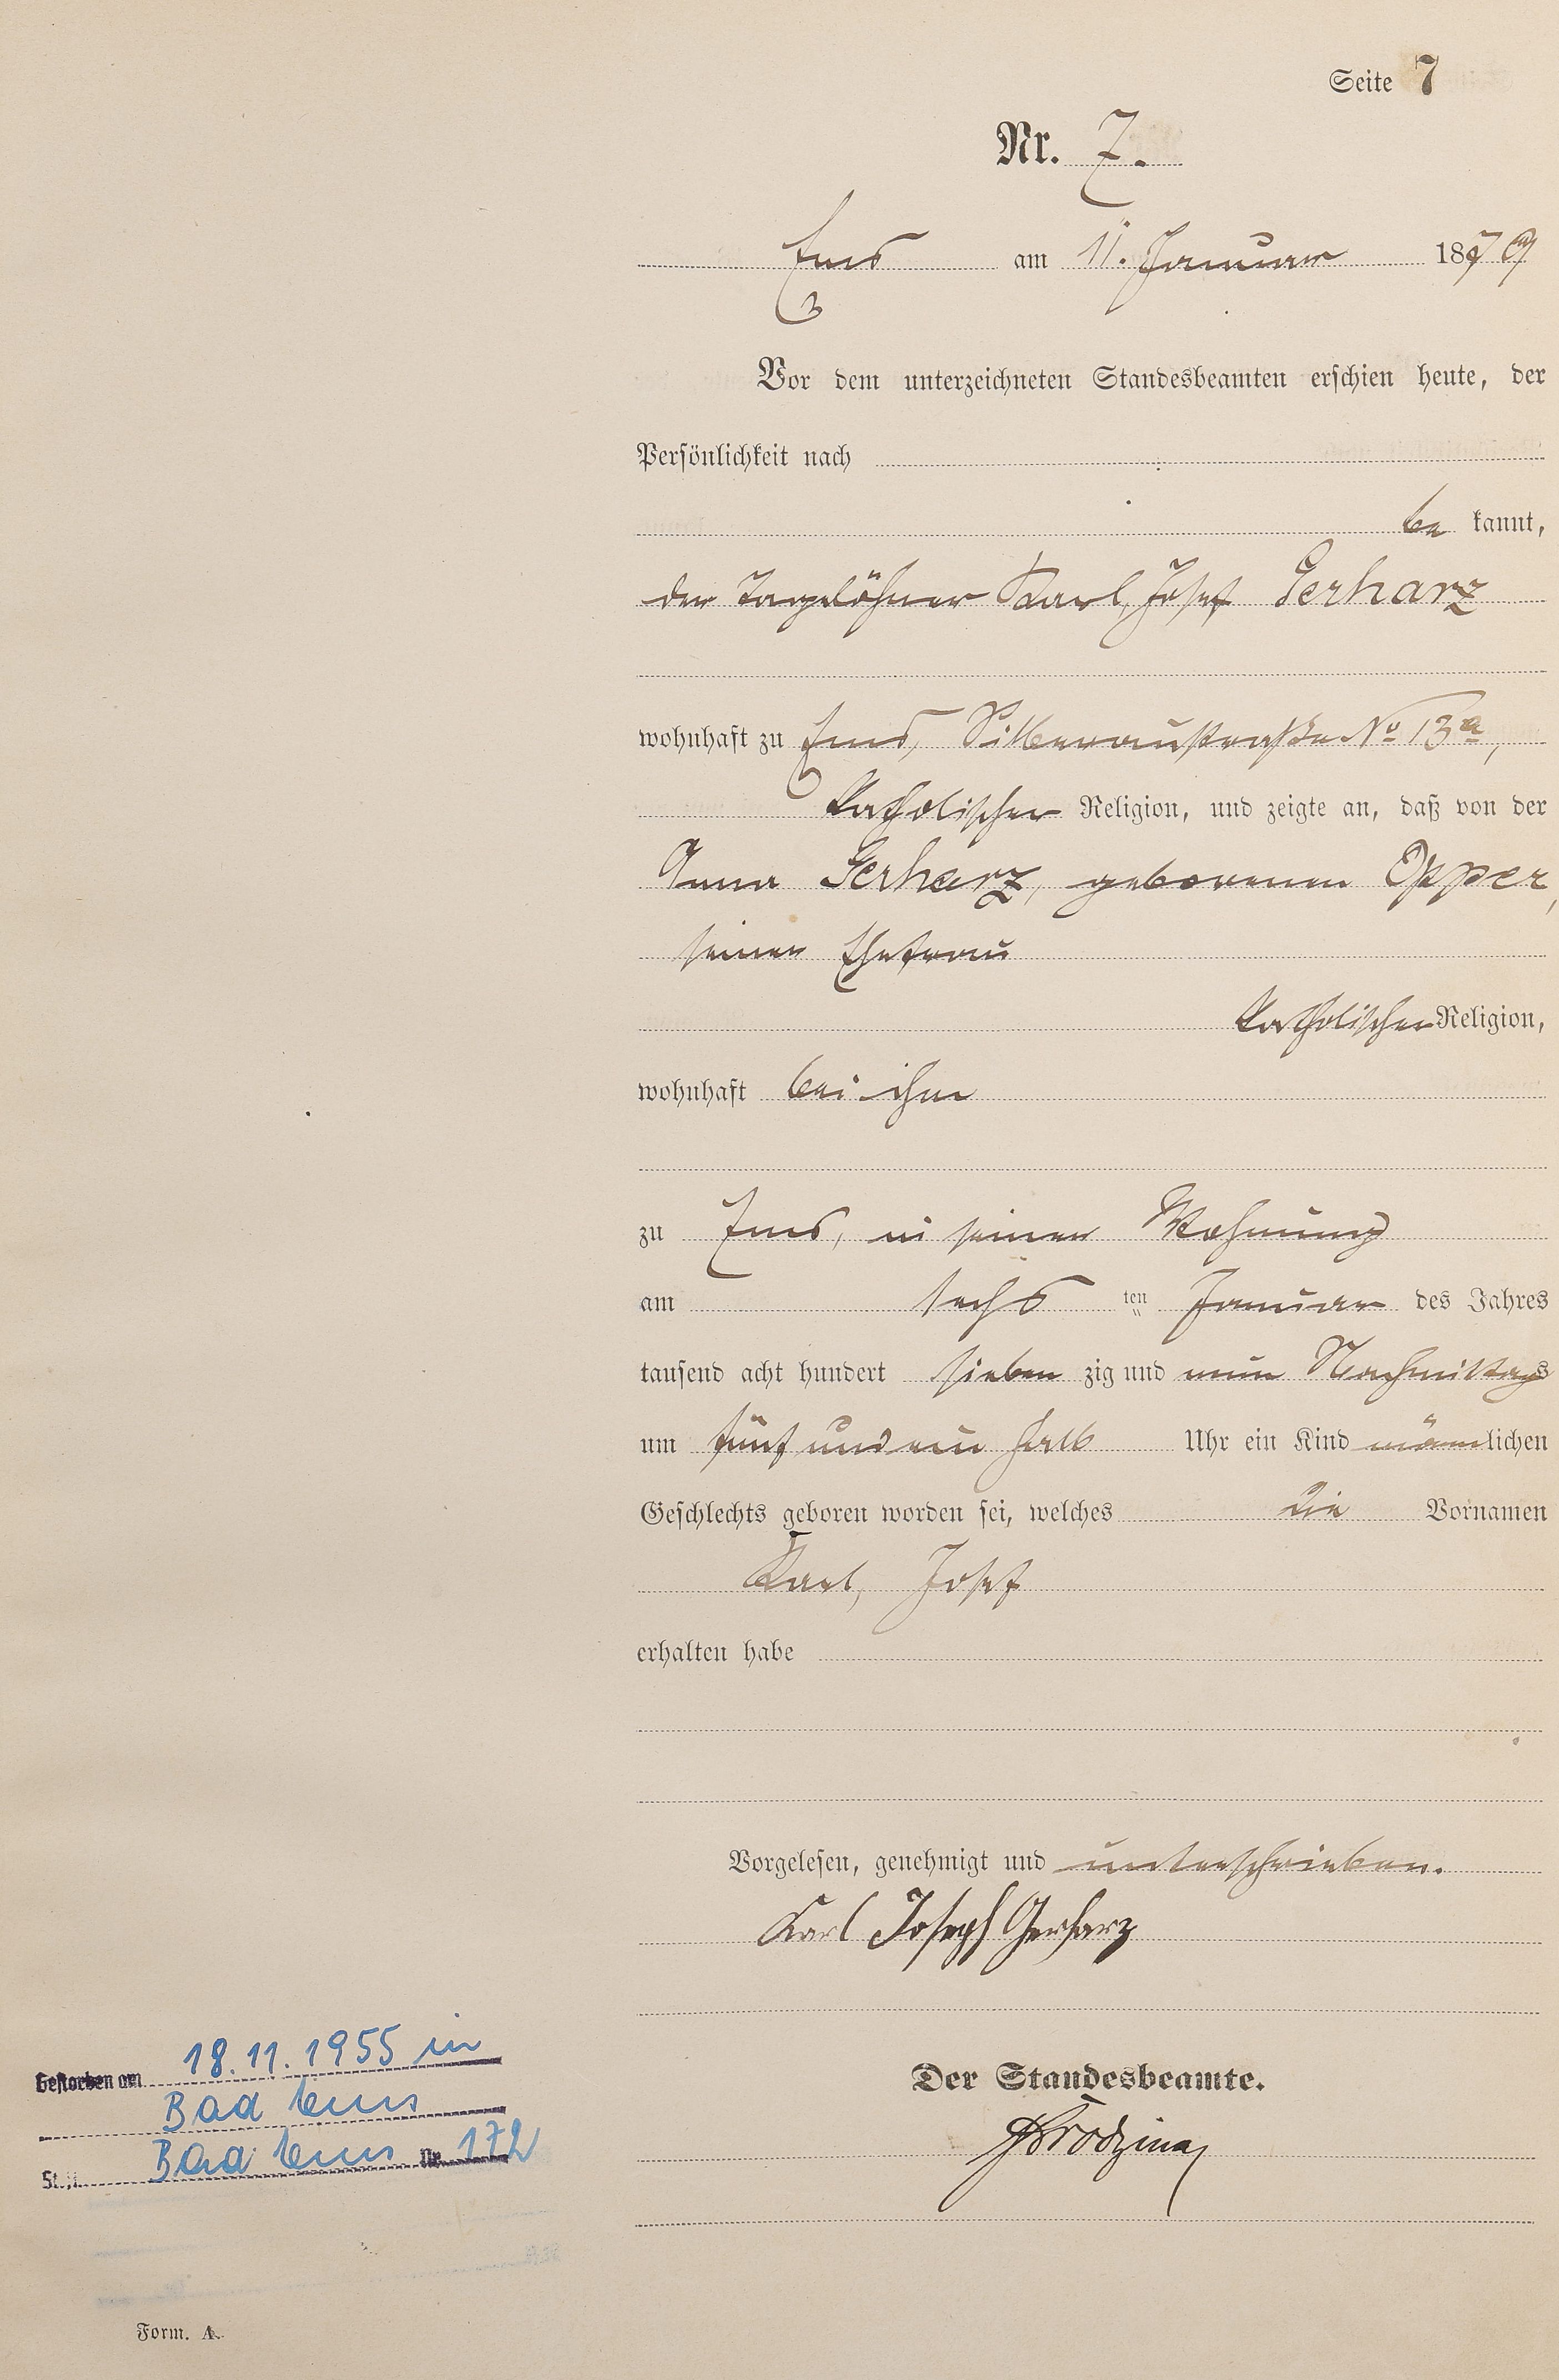 Seite 7
Nr. 7.
Ems am 11. Januar 1879
Vor dem unterzeichneten Standesbeamten erschien heute, der
Persönlichkeit nach
be kannt,
der Tagelöhner Karl, Josef Gerharz
wohnhaft zu Ems, Silberaustraße No 13a,
katholischer Religion, und zeigte an, daß von der
Anna Gerharz, geborenen Opper,
seiner Ehefrau
katholischer Religion,
wohnhaft bei ihm
zu Ems, in seiner Wohnung
am sechs ten Januar des Jahres
tausend acht hundert sieben zig und neun Nachmittags
um fünf und ein halb Uhr ein Kind männlichen
Geschlechts geboren worden sei, welches die Vornamen
Karl, Josef
erhalten habe
Vorgelesen, genehmigt und unterschrieben.
Karl Joseph Gerharz
Der Standesbeamte.
Gestorben am 18.11.1955 in
Bad Ems
St.A. Bad Ems Nr. 172
Form. A.